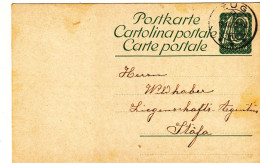 ZUG
Postkarte
Cartolina postale
Carte postale
Herrn
Widhaber
Liegenschafts-Agentur
Stäfa